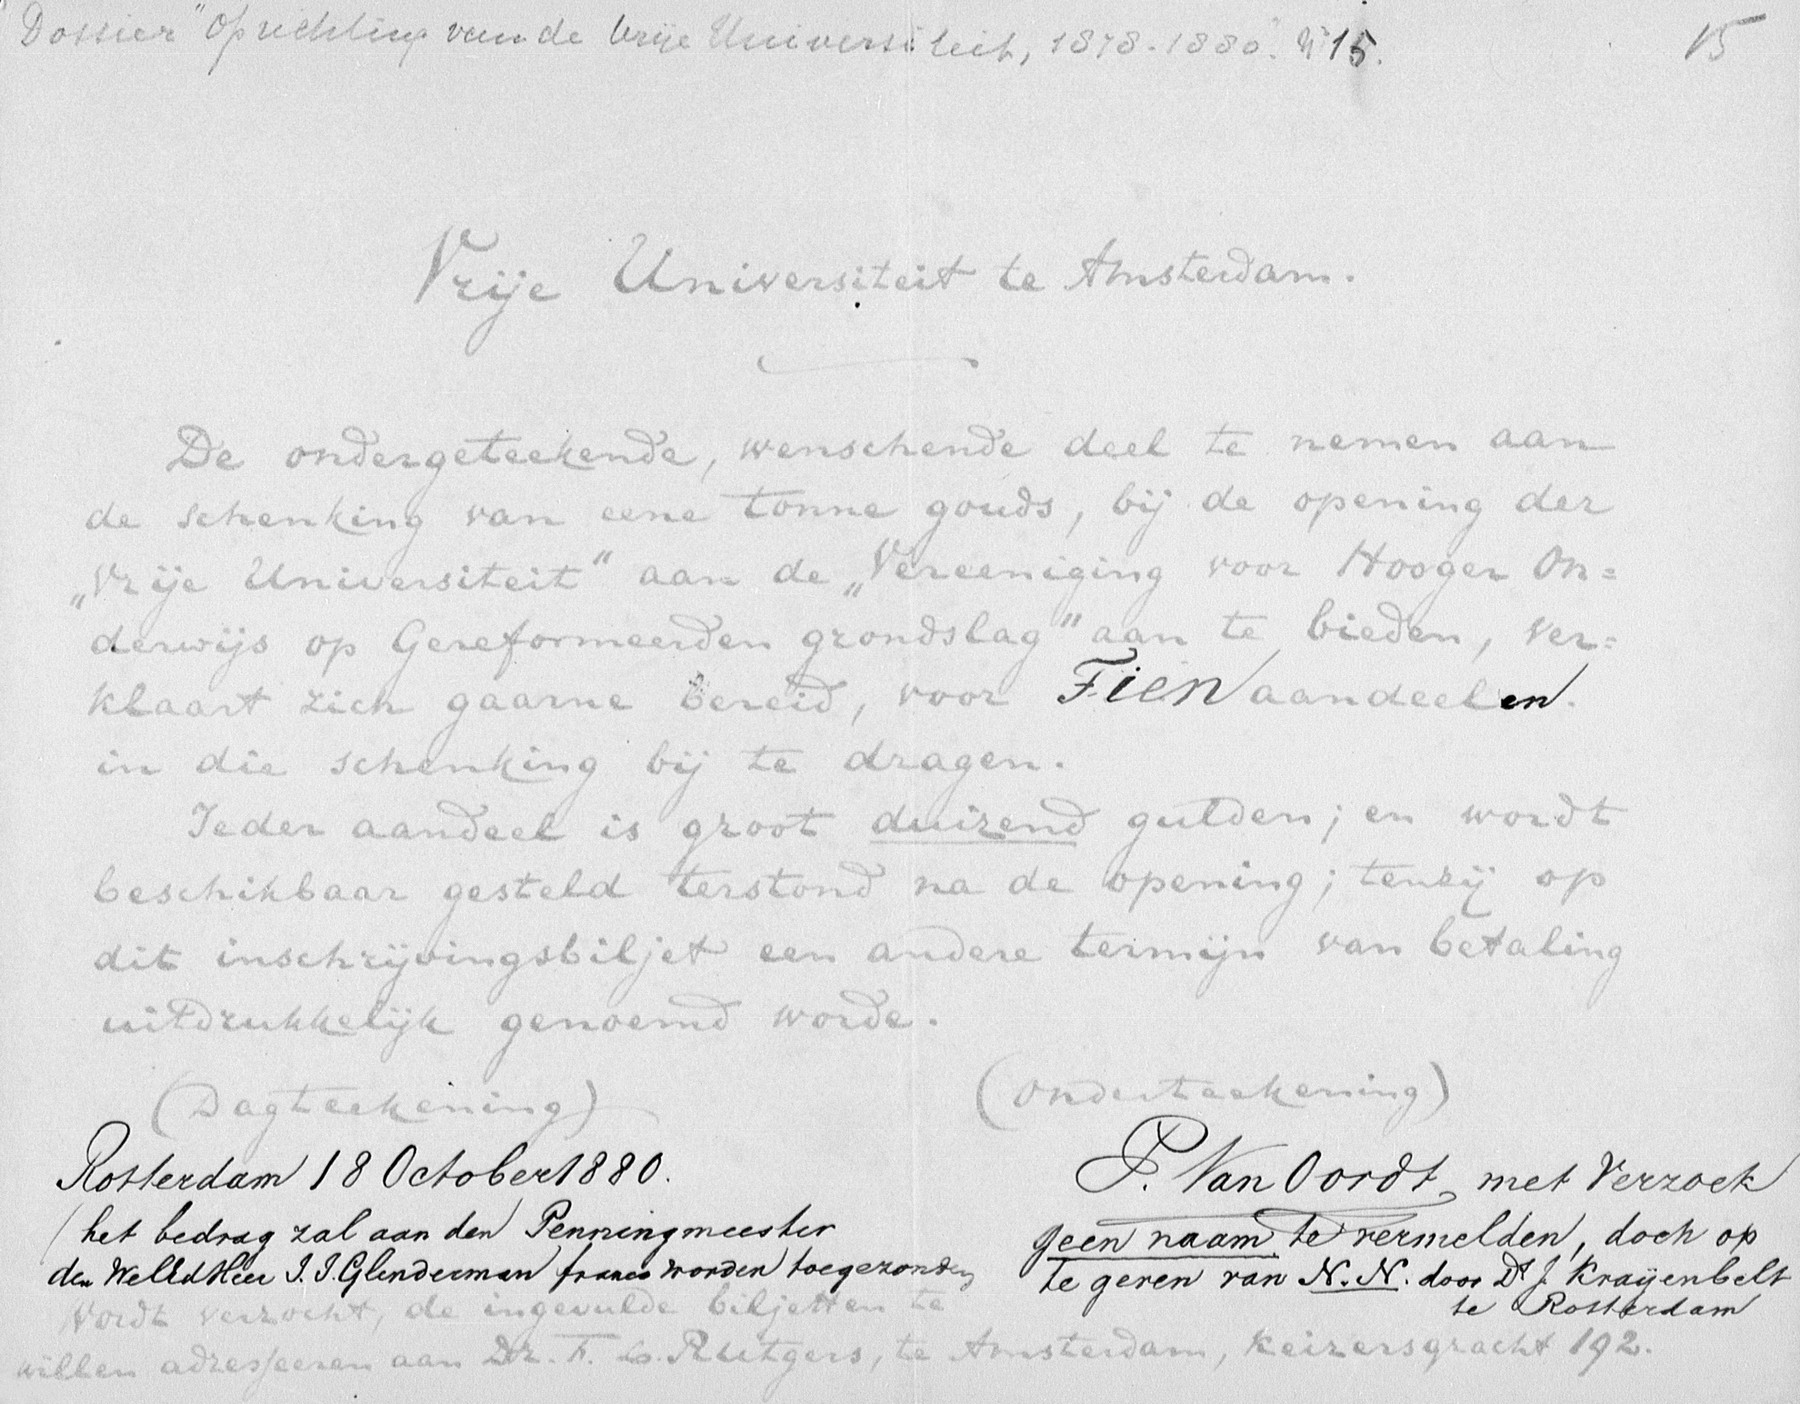 Dossier "Oprichting van de Vrije Universiteit, 1878-1880". No 15.
15
Vrije Universiteit te Amsterdam.
De ondergeteekende, wenschende deel te nemen aan
de schenking van eene tonne gouds, bij de opening der
„Vrije Universiteit" aan de „Vereeniging voor Hooger On=
derwijs op Gereformeerden grondslag" aan te bieden, ver=
klaart zich gaarne bereid, voor Tien aandeelen.
in die schenking bij te dragen.
Ieder aandeel is groot duizend gulden; en wordt
beschikbaar gesteld terstond na de opening; tenzij op
dit inschrijvingsbiljet een andere termijn van betaling
uitdrukkelijk genoemd worde.
(Dagteekening)
(Onderteekening)
Rotterdam 18 October 1880.
P. Van Oordt, met verzoek
(het bedrag zal aan den Penningmeester
geen naam te vermelden, doch op
den WelEdHeer J. J. Glinderman franco worden toegezonden
te geven van N.N. door Dr J. Kraijenbelt
te Rotterdam
Wordt verzocht, de ingevulde biljetten te
willen adresseeren aan Dr. F. L. Rutgers, te Amsterdam, Keizersgracht 192.